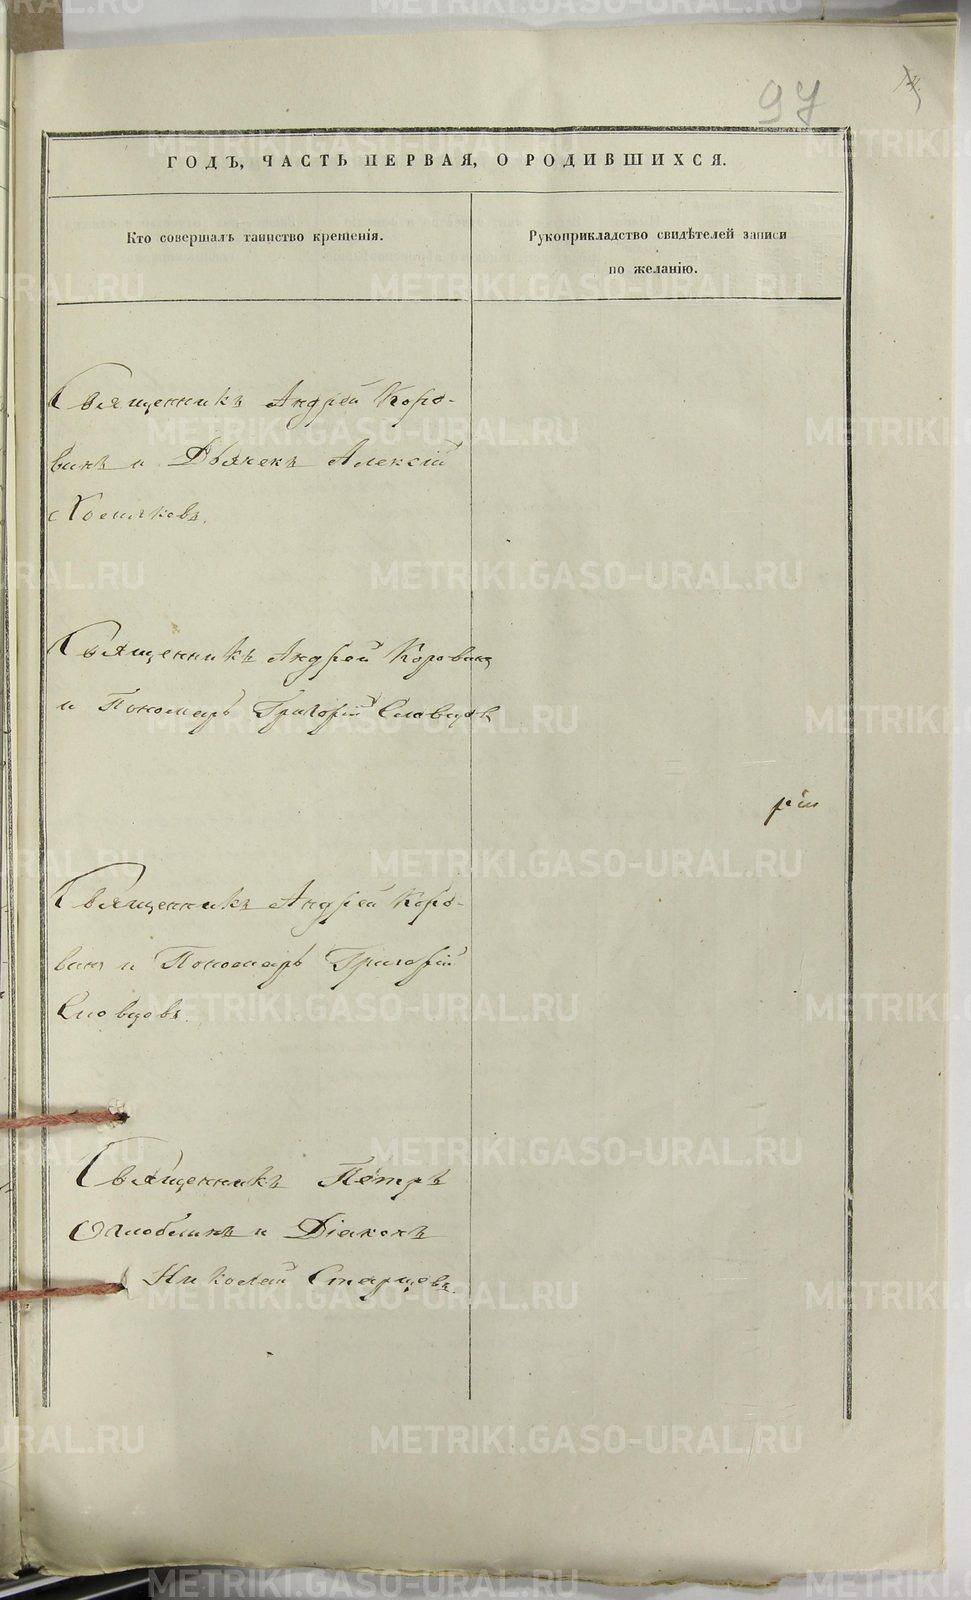 97
ГОДЪ, ЧАСТЬ ПЕРВАЯ, О РОДИВШИХСЯ.
Кто совершалъ таинство крещенія.
Рукоприкладство свидѣтелей записи
по желанію.
Священникъ Андрей Коро-
винъ и Дьячекъ Алексій
Хомяковъ.
Священникъ Андрей Коровинъ
и Пономарь Григорій Словцовъ
Священникъ Андрей Коро-
винъ и Пономарь Григорій
Словцовъ.
Священникъ Петръ
Оглоблинъ и Діаконъ
Николай Старцевъ.
METRIKI.GASO-URAL.RU